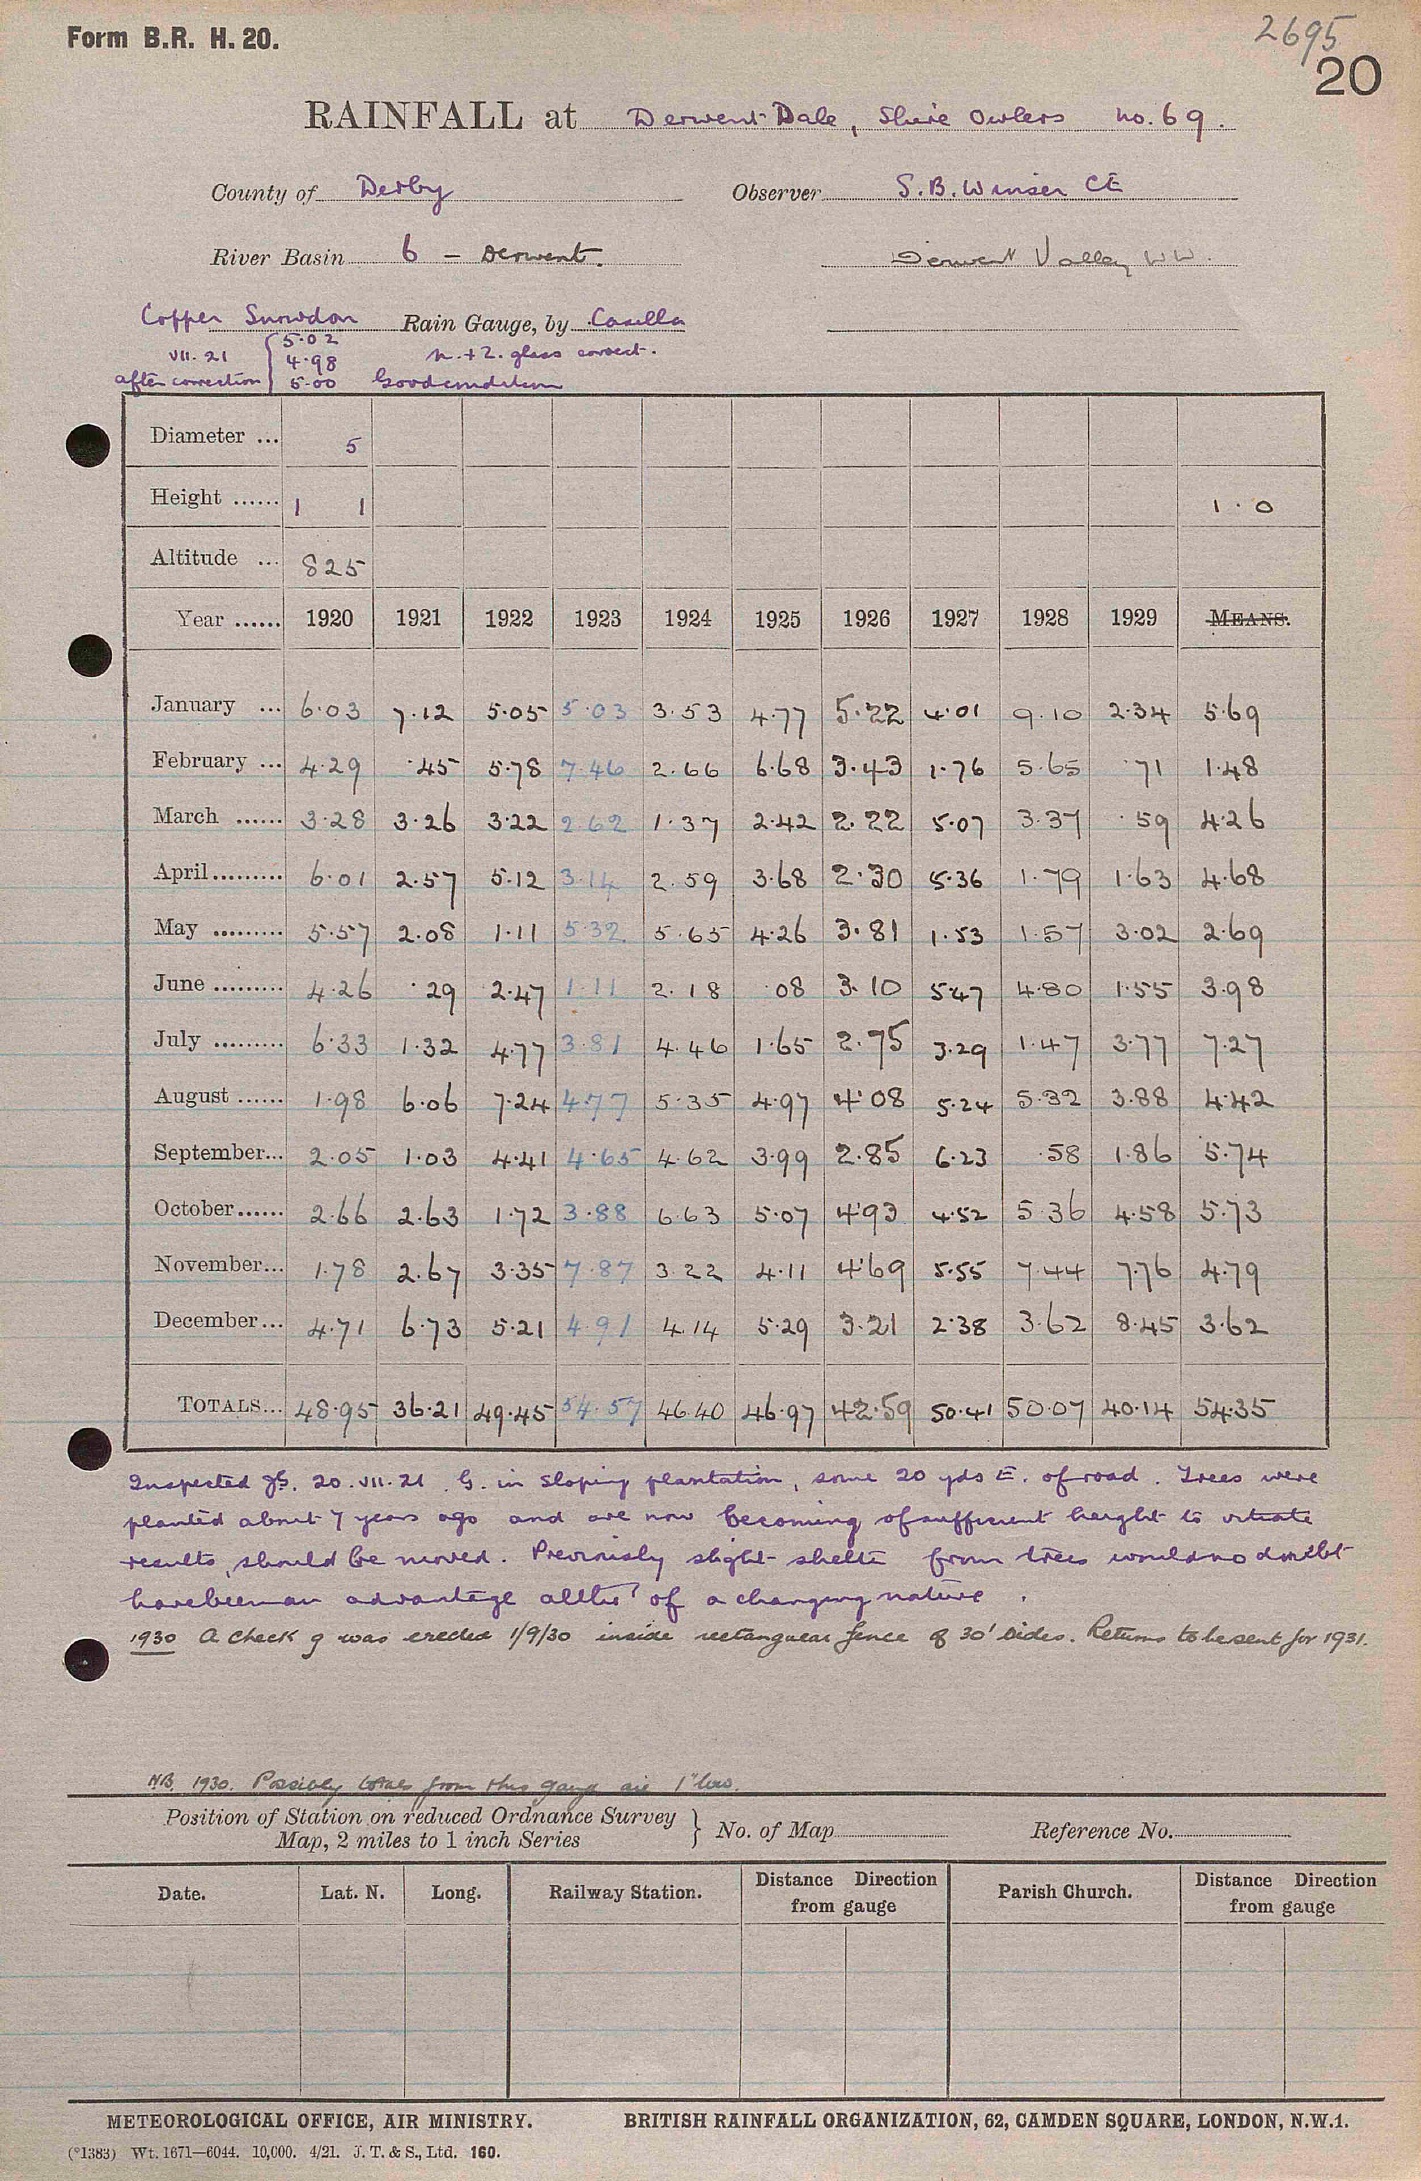 Form B.R. H. 20.
2695
20
RAINFALL at Derwent Dale, Shire Owlers no. 69.
County of Derby Observer S.B. Winser CE
River Basin 6 – Derwent. Derwent Valley WW.
Copper Snowdon Rain Gauge, by Casella
VII. 21 5.02
4.98 n. + 2. glass correct.
after correction 5.00 Good condition
Diameter ... 5
Height ...... 1 1 1.0
Altitude ... 825
Year ...... 1920 1921 1922 1923 1924 1925 1926 1927 1928 1929 MEANS.
January ... 6.03 7.12 5.05 5.03 3.53 4.77 5.22 4.01 9.10 2.34 5.69
February ... 4.29 .45 5.78 7.46 2.66 6.68 3.43 1.76 5.65 .71 1.48
March ...... 3.28 3.26 3.22 2.62 1.37 2.42 2.22 5.07 3.37 .59 4.26
April......... 6.01 2.57 5.12 3.14 2.59 3.68 2.30 5.36 1.79 1.63 4.68
May ......... 5.57 2.08 1.11 5.32 5.65 4.26 3.81 1.53 1.57 3.02 2.69
June ......... 4.26 .29 2.47 1.11 2.18 .08 3.10 5.47 4.80 1.55 3.98
July ......... 6.33 1.32 4.77 3.81 4.46 1.65 2.75 3.29 1.47 3.77 7.27
August ...... 1.98 6.06 7.24 4.77 5.35 4.97 4.08 5.24 5.32 3.88 4.42
September... 2.05 1.03 4.41 4.65 4.62 3.99 2.85 6.23 .58 1.86 5.74
October...... 2.66 2.63 1.72 3.88 6.63 5.07 4.93 4.52 5.36 4.58 5.73
November... 1.78 2.67 3.35 7.87 3.22 4.11 4.69 5.55 7.44 7.76 4.79
December... 4.71 6.73 5.21 4.91 4.14 5.29 3.21 2.38 3.62 8.45 3.62
TOTALS... 48.95 36.21 49.45 54.57 46.40 46.97 42.59 50.41 50.07 40.14 54.35
Inspected 20.VII.21. G. in sloping plantation, some 20 yds E. of road. Trees were
planted about 7 years ago and are now becoming of sufficient height to vitiate
results, should be moved. Previously slight shelter from trees would no doubt
have been an advantage altho' of a changing nature.
1930 A check g was erected 1/9/30 inside rectangular fence of 30' sides. Returns to be sent for 1931.
NB. 1930. Possibly totals from this gauge are 1" low.
Position of Station on reduced Ordnance Survey
Map, 2 miles to 1 inch Series } No. of Map Reference No.
Date. Lat. N. Long. Railway Station. Distance Direction from gauge Parish Church. Distance Direction from gauge
METEOROLOGICAL OFFICE, AIR MINISTRY. BRITISH RAINFALL ORGANIZATION, 62, CAMDEN SQUARE, LONDON, N.W.1.
(*1383) Wt. 1671—6044. 10,000. 4/21. J. T. & S., Ltd. 160.